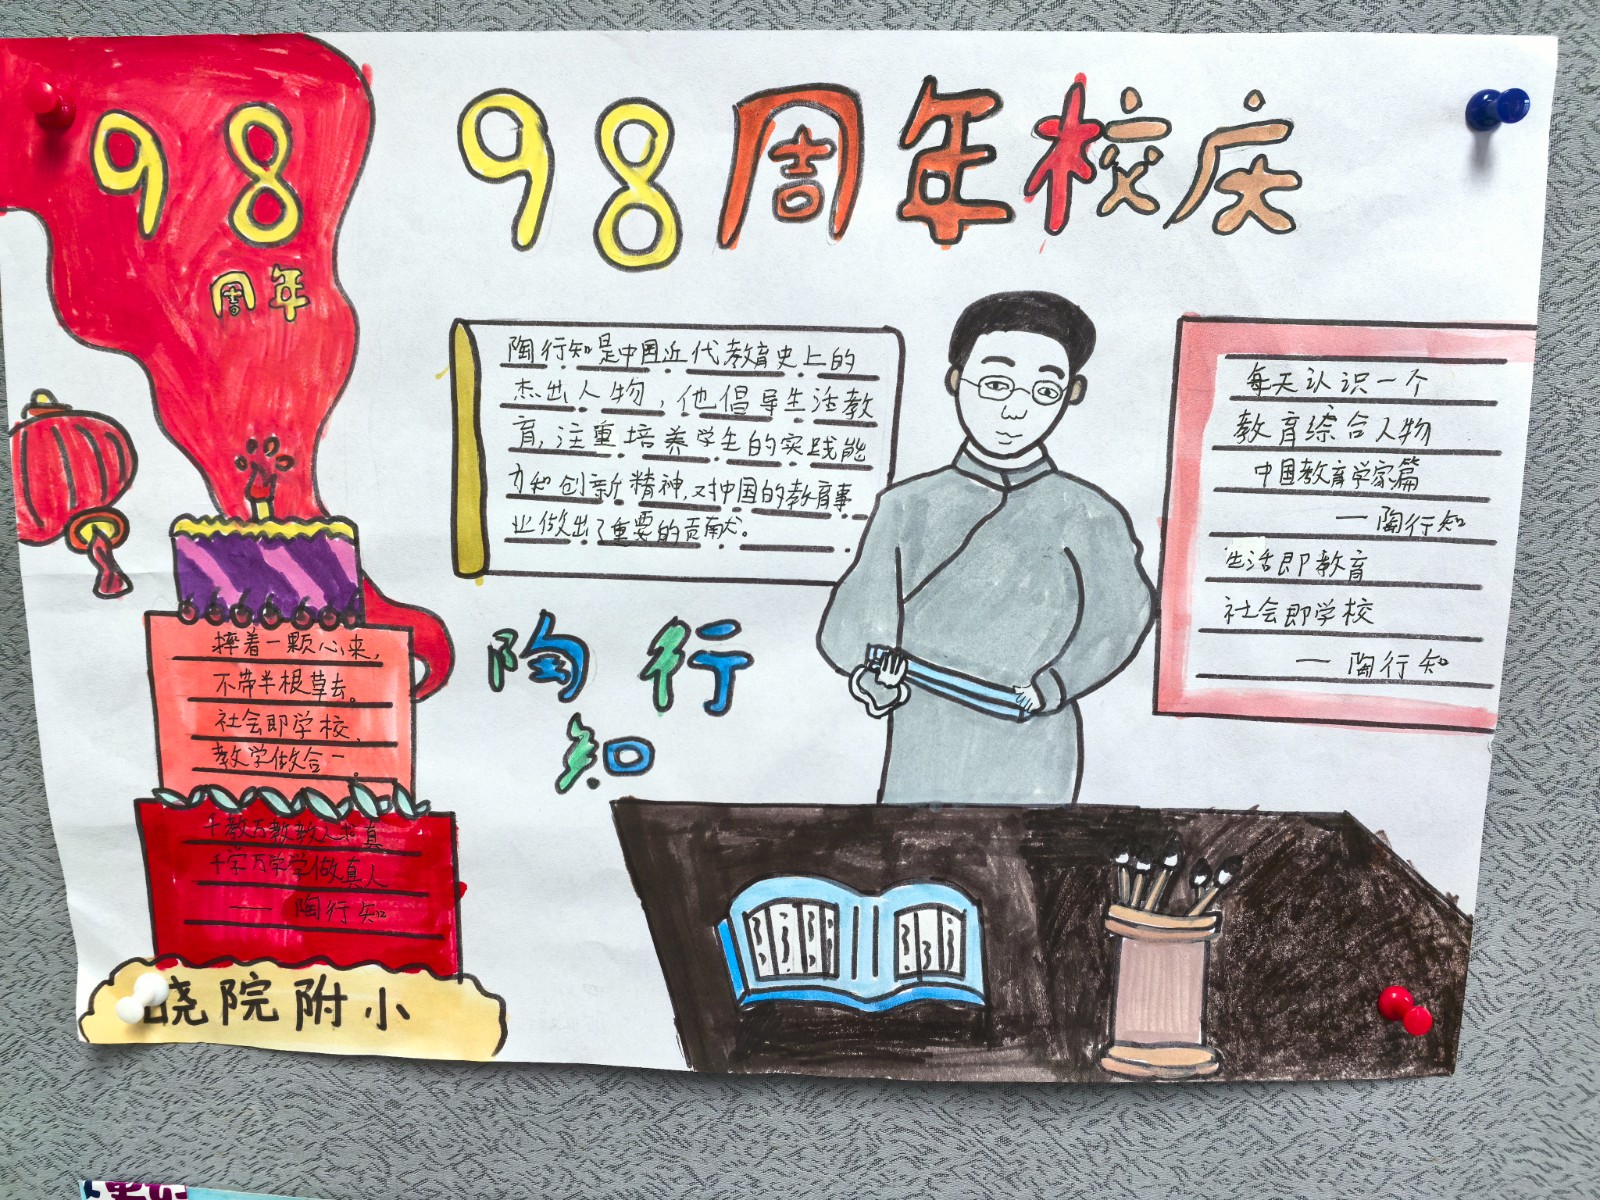 98
周年
98周年校庆
陶行知是中国近代教育史上的
杰出人物，他倡导生活教
育，注重培养学生的实践能
力和创新精神，对中国的教育事
业做出了重要的贡献。
每天认识一个
教育综合人物
中国教育学家篇
—陶行知
生活即教育
社会即学校
—陶行知
陶行
知
捧着一颗心来，
不带半根草去。
社会即学校，
教学做合一。
千教万教教人求真
千学万学学做真人
——陶行知
晓院附小